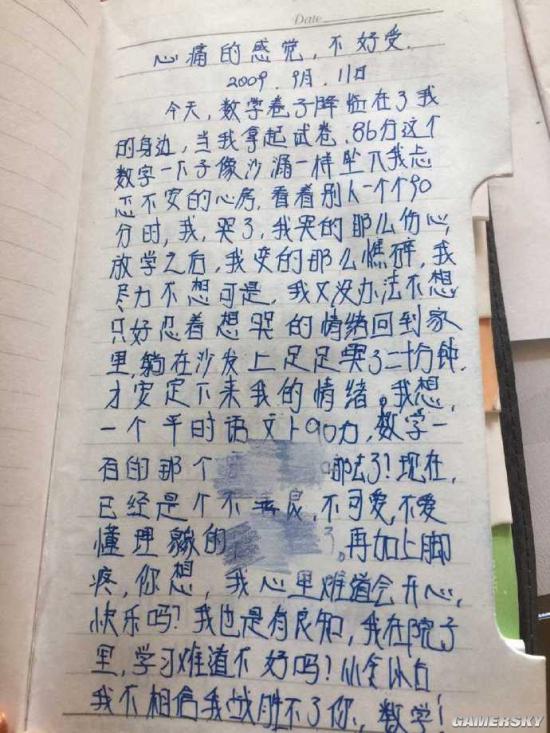 Date
心痛的感觉,不好受.
2009.9月.11日
今天,数学卷子降临在了我
的身边,当我拿起试卷.86分这个
数字一下子像沙漏一样坠下我忐
忑不安的心房,看着别人一个个90
分时,我,哭了,我哭的那么伤心,
放学之后,我变的那么憔碎,我
尽力不想可是,我又没办法不想
只好忍着想哭的情绪回到家
里,躺在沙发上足足哭了二十分钟.
才安定下来我的情绪。我想,
一个平时语文90,数学一
百的那个 哪去了?现在,
已经是个不善良,不可爱,不爱
懂理的 了。再加上脚
疼,你想,我心里难道会开心,
快乐吗?我也是有良知,我在院子
里,学习难道不好吗!
我不相信我战胜不了你,数学!
GAMERSKY